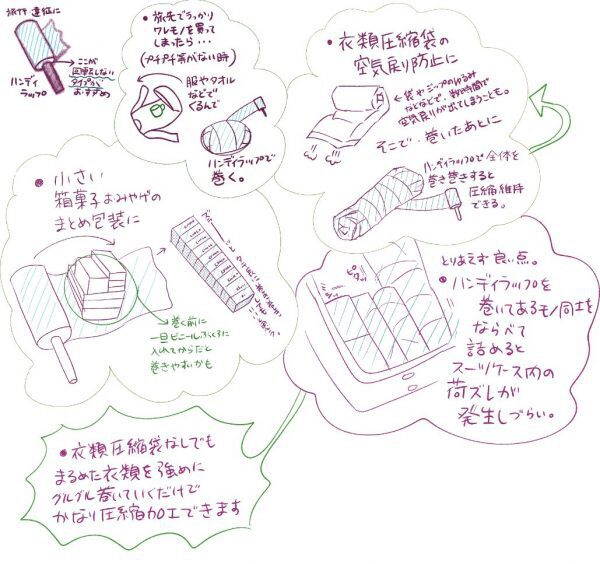 旅行・遠征に
ハンディ
ラップ
ここが
回転しない
タイプが
おすすめ
• 旅先でうっかり
ワレモノを買って
しまったら・・・
(プチプチ等がない時)
服やタオル
などで
くるんで
ハンディラップで
巻く。
• 衣類圧縮袋の
空気戻り防止に
袋やジップのゆるみ
などなどで、数時間で
空気戻りが出てしまうことも。
そこで、巻いたあとに
ハンディラップで全体を
巻き巻きすると
圧縮維持
できる。
• 小さい
箱菓子おみやげの
まとめ包装に
巻く前に
一旦ビニールぶくろに
入れてからだと
巻きやすいかも
とりあえず良い点。
• ハンディラップを
巻いてあるモノ同士を
ならべて
詰めると
スーツケース内の
荷ズレが
発生しづらい。
• 衣類圧縮袋なしでも
まるめた衣類を強めに
グルグル巻いていくだけで
かなり圧縮加工できます